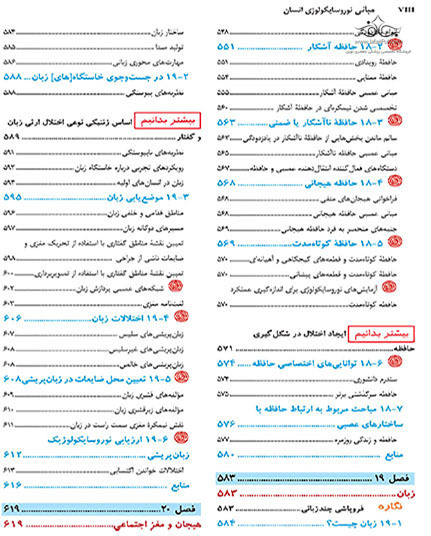 VIII مبانی نوروسایکولوژی انسان
۵۴۸
۱۸-۲ حافظه آشکار ۵۵۱
حافظهٔ رویدادی ۵۵۱
حافظهٔ معنایی ۵۵۴
مبانی عصبی حافظهٔ آشکار ۵۵۵
تخصصی شدن نیمکره‌ای در حافظهٔ آشکار ۵۶۰
۱۸-۳ حافظه ناآشکار یا ضمنی ۵۶۳
سالم ماندن بخش‌هایی از حافظهٔ ناآشکار در یادزدودگی ۵۶۳
مبانی عصبی حافظه ناآشکار ۵۶۵
دستگاه‌های فعال‌کننده انتقال‌دهنده عصبی و حافظه ۵۶۷
۱۸-۴ حافظه هیجانی ۵۶۸
فراخوانی هیجان‌های منفی ۵۶۸
مبانی عصبی حافظه هیجانی ۵۶۸
جنبه‌های منحصر به فرد حافظه هیجانی ۵۶۹
۱۸-۵ حافظه کوتاه‌مدت ۵۶۹
حافظه کوتاه‌مدت و قطعه‌های گیجگاهی و آهیانه‌ای ۵۷۰
حافظه کوتاه‌مدت و قطعه‌های پیشانی ۵۷۰
آزمایش‌های نوروسایکولوژی برای اندازه‌گیری عملکرد
حافظه کوتاه‌مدت ۵۷۰
بیشتر بدانیم ایجاد اختلال در شکل‌گیری
حافظه ۵۷۱
۱۸-۶ توانایی‌های اختصاصی حافظه ۵۷۴
سندرم دانشوری ۵۷۴
حافظه سرگذشتی برتر ۵۷۵
۱۸-۷ مباحث مربوط به ارتباط حافظه با
ساختارهای عصبی ۵۷۶
حافظه و زندگی روزمره ۵۷۷
منابع ۵۸۰
فصل ۱۹ ۵۸۳
زبان ۵۸۳
نگاره فروپاشی چندزبانی ۵۸۳
۱۹-۱ زبان چیست؟ ۵۸۴
ساختار زبان ۵۸۴
تولید صدا ۵۸۵
مهارت‌های محوری زبانی ۵۸۶
۱۹-۲ در جست‌وجوی خاستگاه[های] زبان ۵۸۸
نظریه‌های پیوستگی ۵۸۸
بیشتر بدانیم اساس ژنتیکی نوعی اختلال ارثی زبان
و گفتار ۵۸۹
نظریه‌های ناپیوستگی ۵۹۱
رویکردهای تجربی درباره خاستگاه زبان ۵۹۲
زبان در انسان‌های اولیه ۵۹۴
۱۹-۳ موضع‌یابی زبان ۵۹۵
مناطق قدامی و خلفی زبان ۵۹۶
مسیرهای دوگانه زبان ۵۹۷
تعیین نقشهٔ مناطق گفتاری با استفاده از تحریک مغزی و
ضایعات ناشی از جراحی ۵۹۸
تعیین نقشهٔ مناطق گفتاری با استفاده از تصویربرداری ۶۰۰
شبکه‌های عصبی پردازش زبان ۶۰۲
لغت‌نامه مغزی ۶۰۳
۱۹-۴ اختلالات زبان ۶۰۶
زبان‌پریشی‌های سلیس ۶۰۷
زبان‌پریشی‌های غیرسلیس ۶۰۸
زبان‌پریشی‌های خالص ۶۰۸
۱۹-۵ تعیین محل ضایعات در زبان‌پریشی ۶۰۸
مؤلفه‌های قشری زبان ۶۰۹
مؤلفه‌های زیرقشری زبان ۶۱۰
نقش نیمکرهٔ مغزی سمت راست در زبان ۶۱۱
۱۹-۶ ارزیابی نوروسایکولوژیک
زبان‌پریشی ۶۱۲
اختلالات خواندن اکتسابی ۶۱۳
منابع ۶۱۶
فصل ۲۰ ۶۱۹
هیجان و مغز اجتماعی ۶۱۹